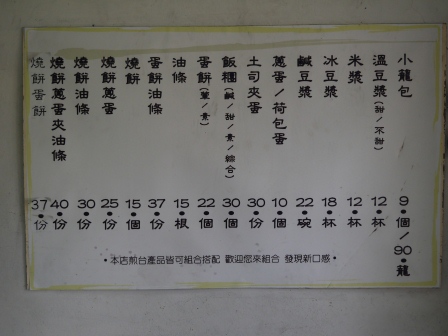 小籠包 9•個/90•籠
溫豆漿(甜/不甜) 12•杯
米漿 12•杯
冰豆漿 18•杯
鹹豆漿 22•碗
蔥蛋/荷包蛋 10•個
土司夾蛋 30•份
飯糰(鹹/甜/素/綜合) 30•個
蛋餅(葷/素) 22•個
油條 15•根
蛋餅油條 37•份
燒餅 15•個
燒餅蔥蛋 25•份
燒餅油條 30•份
燒餅蔥蛋夾油條 40•份
燒餅蛋餅 37•份
•本店煎台產品皆可組合搭配 歡迎您來組合 發現新口感•